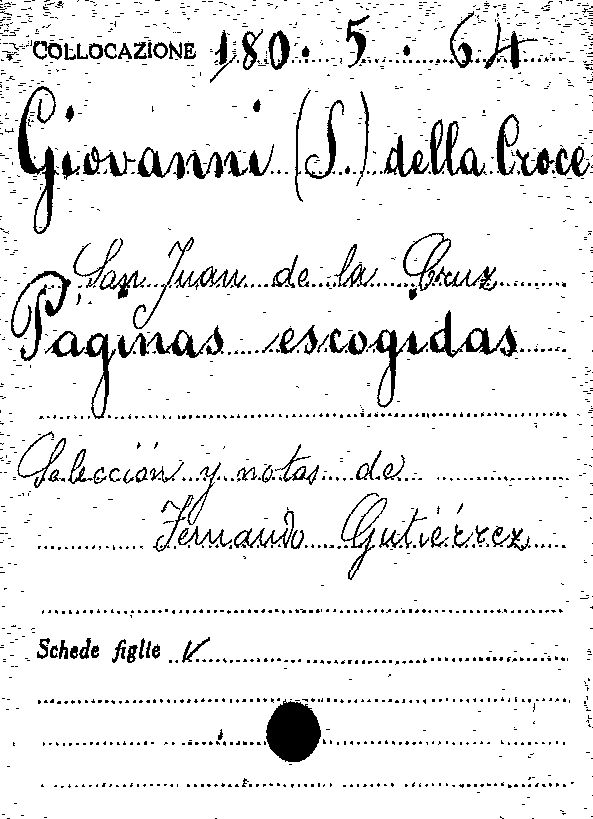 COLLOCAZIONE 180. 5. 64
Giovanni (S.) della Croce
San Juan de la Cruz
Páginas escogidas
Selección y notas de
Fernando Gutiérrez
Schede figlie V